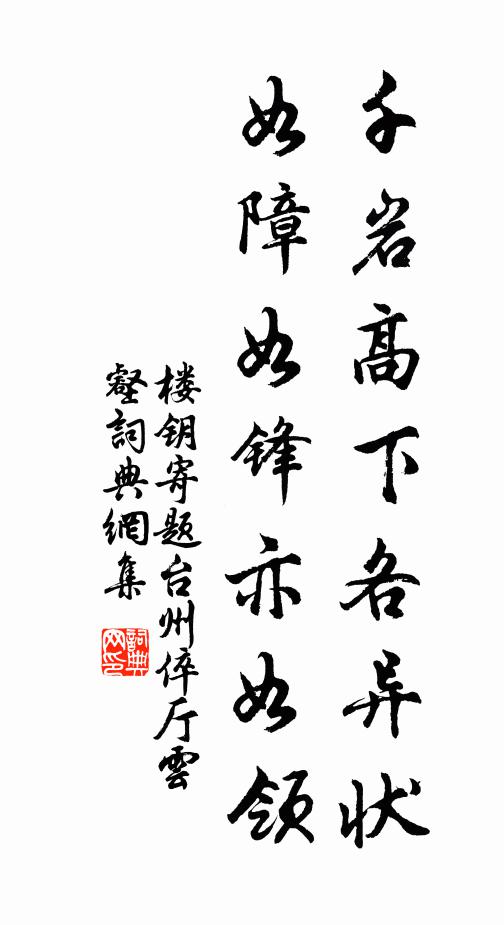 千岩高下各异状
如障如锋亦如领
楼钥寄题台州倅厅雲
壑詞典網集
詞典网印